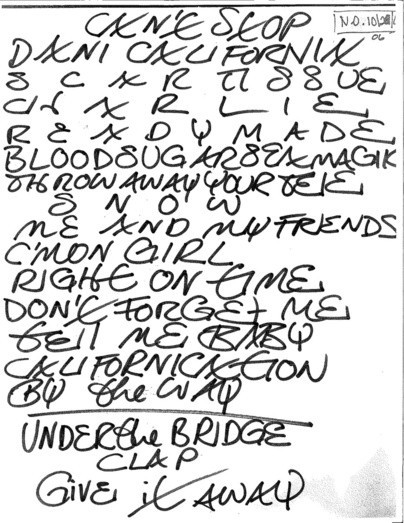 CAN'T STOP
N.O. 10/
06
DANI CALIFORNIA
SCAR TISSUE
CHARLIE
READYMADE
BLOODSUGARSEXMAGIK
THROW AWAY YOUR TELE
SNOW
ME AND MY FRIENDS
C'MON GIRL
RIGHT ON TIME
DON'T FORGET ME
TELL ME BABY
CALIFORNICATION
BY the WAY
UNDER the BRIDGE
CLAP
GIVE it AWAY